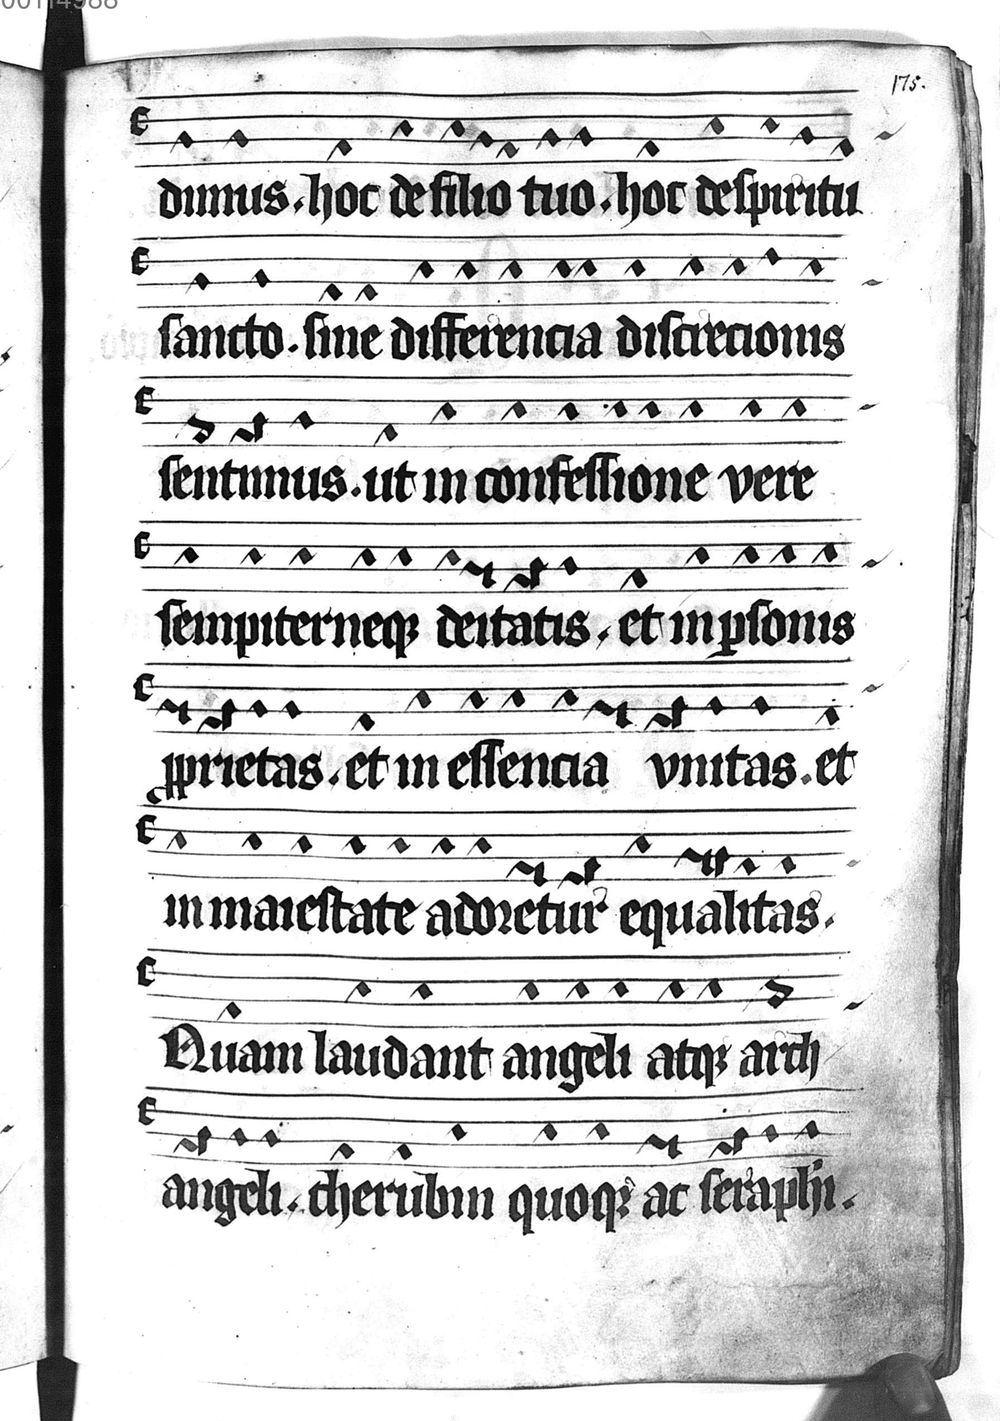 00114988
175.
dimus. hoc de filio tuo. hoc de spiritu
sancto. sine differencia discrecionis
sentimus. ut in confessione vere
sempiterneqꝫ deitatis. et in ꝑsonis
ꝓprietas. et in essencia vnitas. et
in maiestate adoretur equalitas.
Quam laudant angeli atqꝫ arch
angeli. cherubin quoqꝫ ac seraphi.